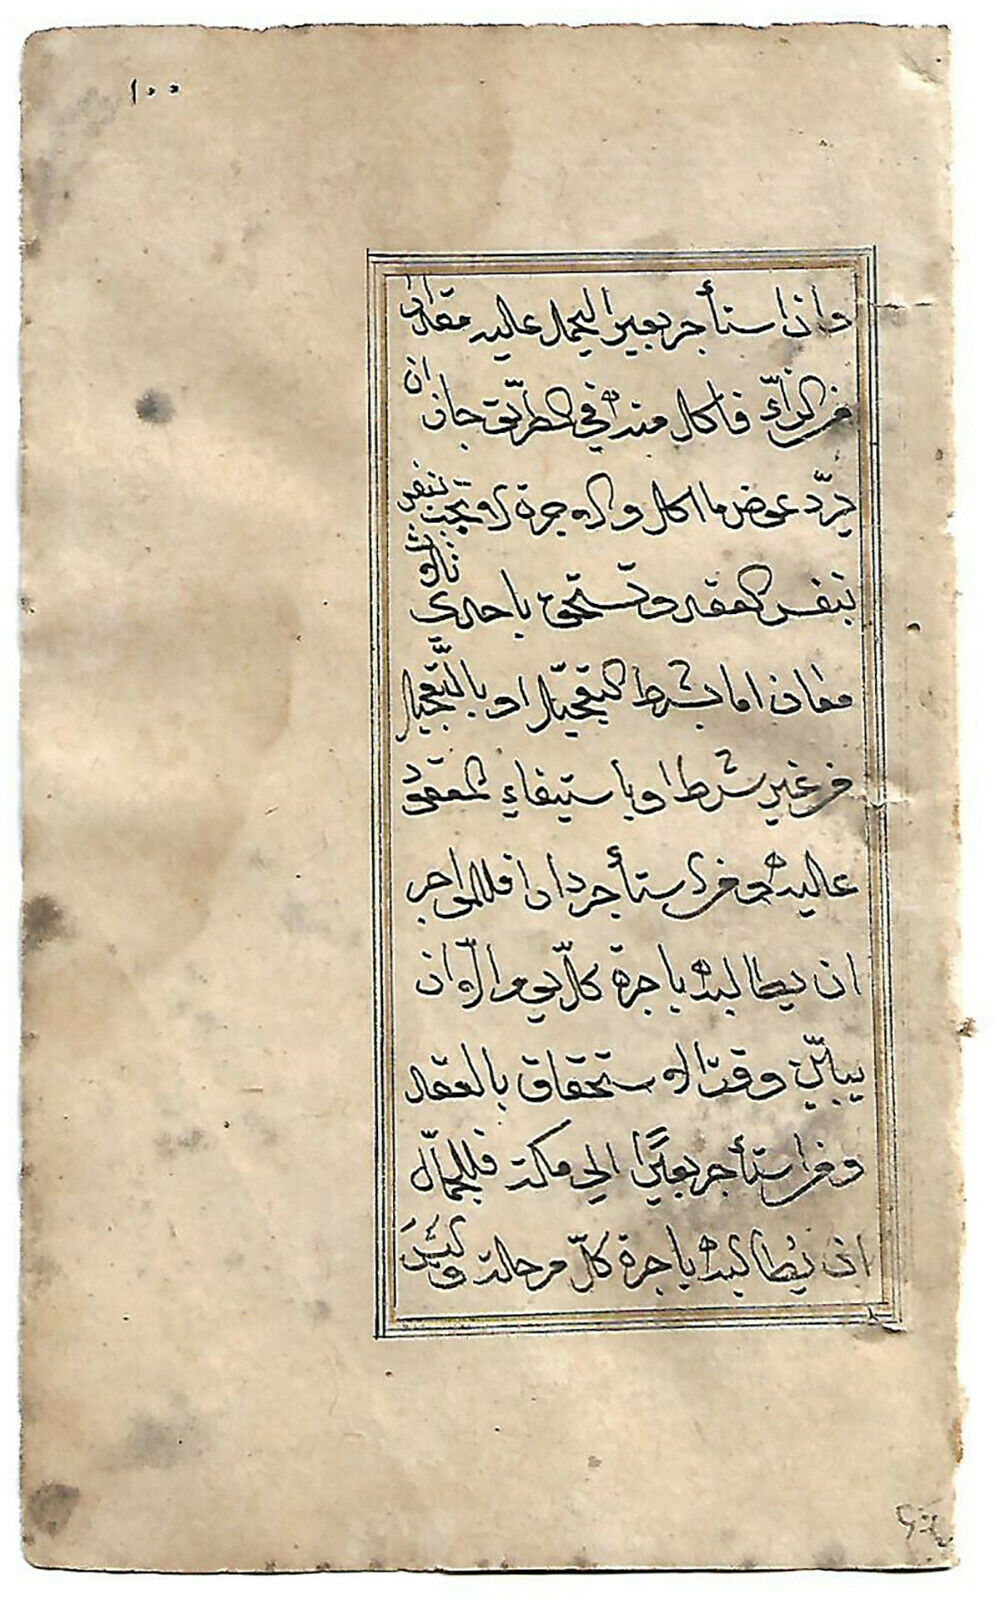 ١٠٠
واذا استأجر بعيرا ليحمل عليه مقدارا
من الزاد فاكل منه في الطريق جاز ان
يرد عوض ما اكل والاجرة لا تجب بنفس
بنفس العقد وتستحق باحدى ثلاث
معان اما بشرط التعجيل او بالتعجيل
من غير شرط او باستيفاء المعقود
عليه ومن استأجر دارا فللمواجر
ان يطالبه باجرة كلّ يوم الّا ان
يبيّن وقت الاستحقاق بالعقد
ومن استأجر بعيرًا الى مكة فللجمّال
ان يُطالبه باجرة كلّ مرحلة وليسَ